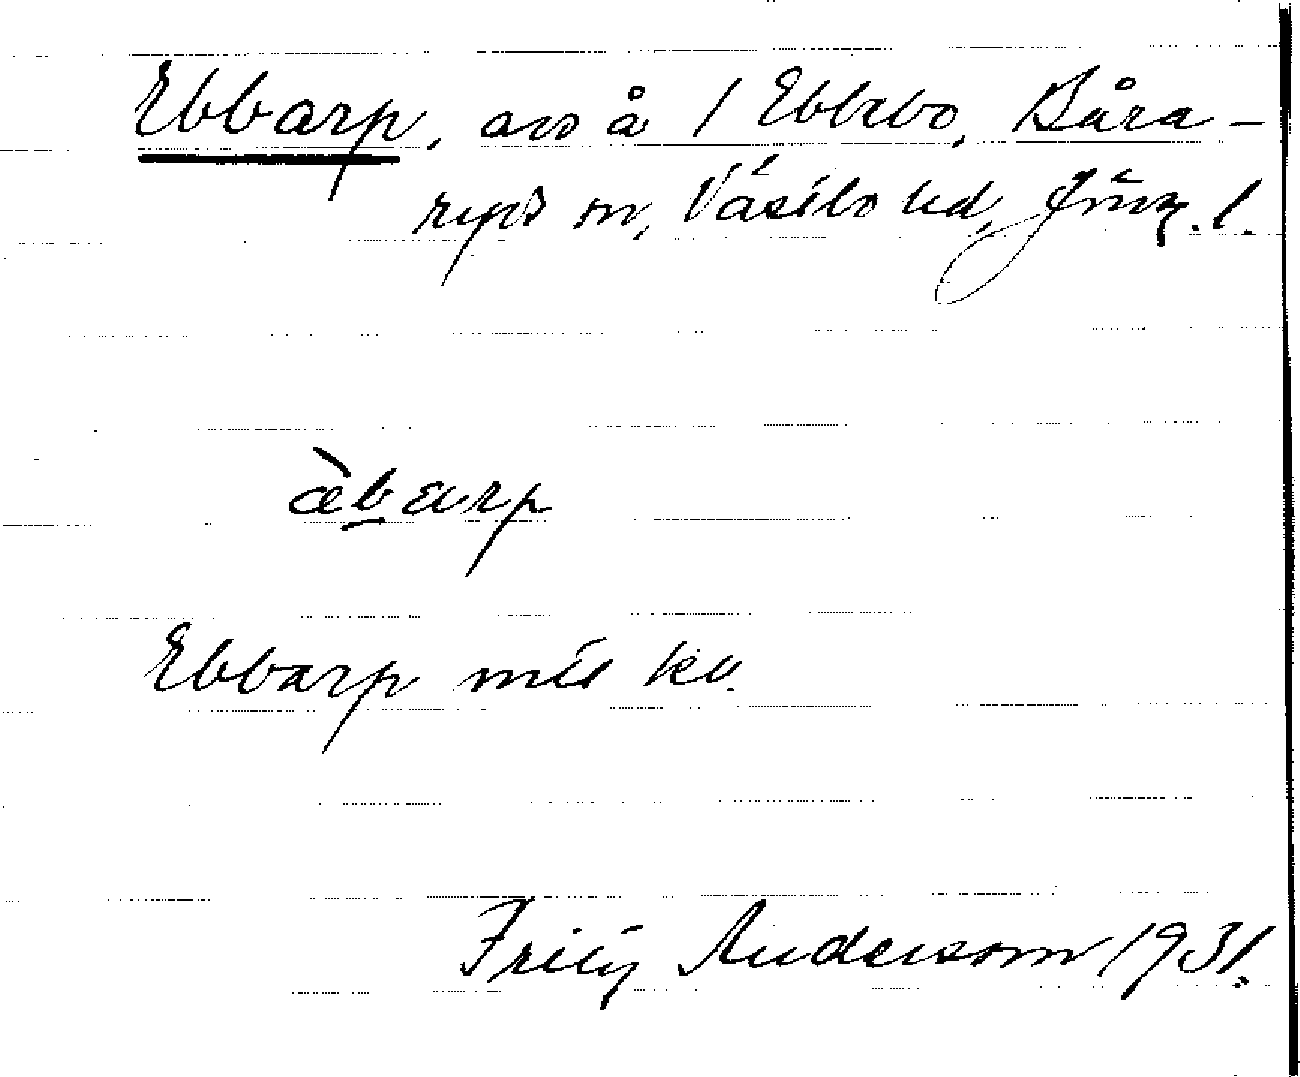 Ebbarp, avs å 1 Ebbebo, Båra-
ryds sn, Västbo hd, Jönk. l.
æ̀b̲arp
Ebbarp mtl kv.
Fritz Anderson 1931.